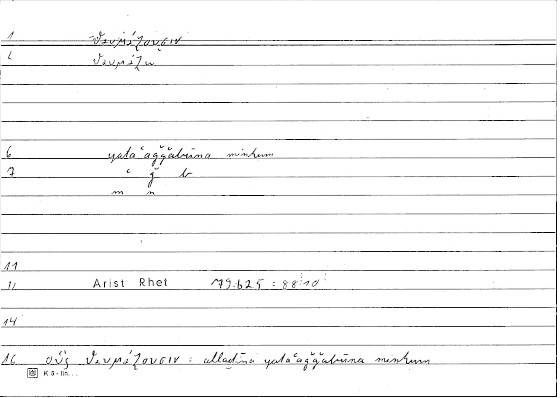 1 θαυμάζουσιν
2 θαυμάζω
6 yataʿaǧǧabūna minhum
7 ʿ ǧ b
m n
11
11 Arist Rhet 79:b25 : 88:10
14
16 οὓς θαυμάζουσιν : alladīna yataʿaǧǧabūna minhum
K 5 - lin...